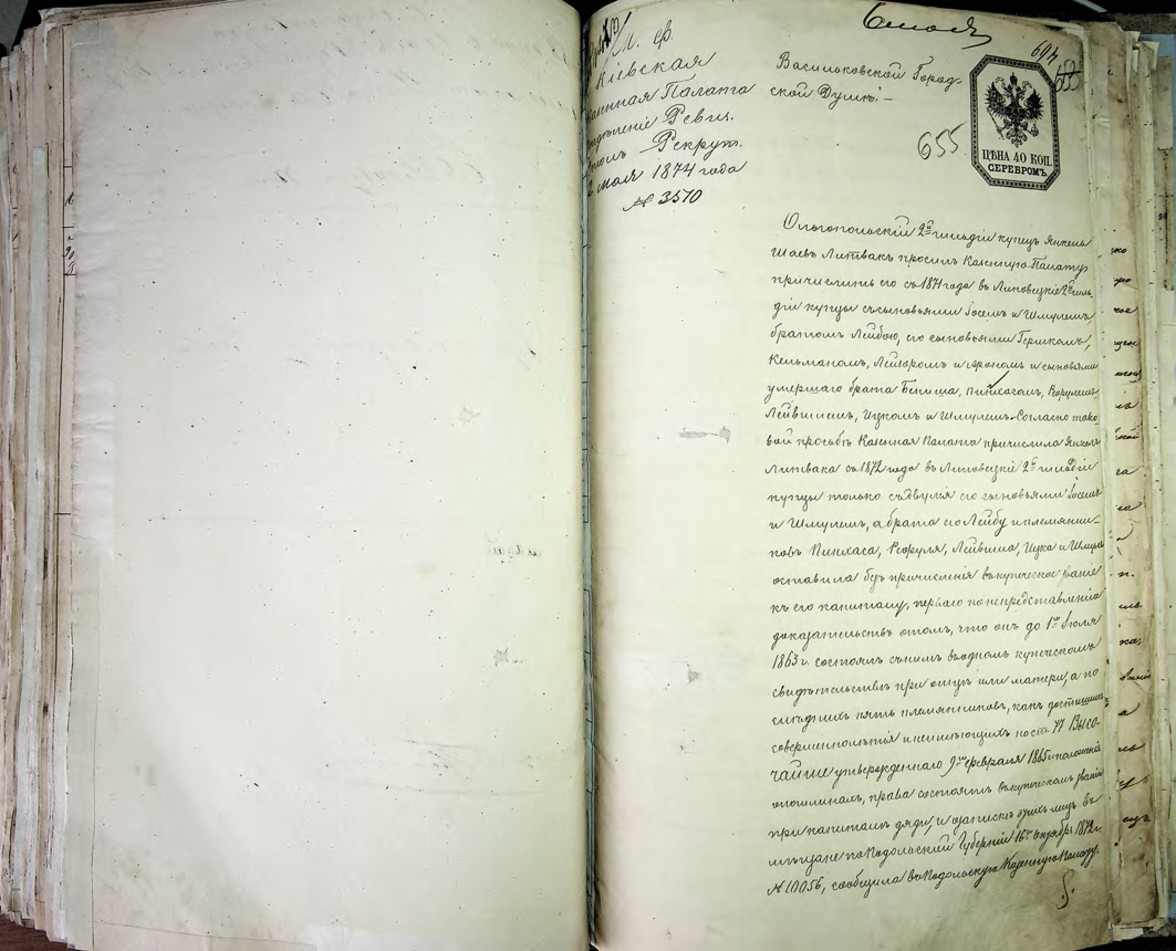 М. Ф.
Кіевская
Казенная Палата
Отдѣленіе Ревиз.
Столъ Рекрут.
2 мая 1874 года
№ 3570
604
Васильковской Город-
ской Думѣ.–
655
ЦѢНА 40 КОП.
СЕРЕБРОМЪ.
Ольгопольскій 2й гильдіи купецъ Янкель
Шаевъ Литвакъ просилъ Казенную Палату
причислить его съ 1871 года въ Липовецкіе 2й гиль
діи купцы съ сыновьями Іосемъ и Шмулемъ,
братомъ Лейбою, его сыновьями Гершкомъ,
Кельманомъ, Лейзоромъ и Арономъ и сыновьями
умершаго брата Бениша, Пинхасомъ,
Лейвишемъ, Ицкомъ и Шмулемъ. Согласно тако
вой просьбѣ Казенная Палата причислила Янкеля
Литвака съ 1872 года въ Липовецкіе 2й гильдіи
купцы только съ двумя его сыновьями Іосемъ
и Шмулемъ, а брата его Лейбу и племянни-
ковъ Пинхаса, Лейвиша, Ицка и Шмуля
оставила безъ причисленія въ купеческое званіе
къ его капиталу, перваго по непредставленію
доказательствъ о томъ, что онъ до 1го Іюля
1863 г. состоялъ съ нимъ въ одномъ купеческомъ
свидѣтельствѣ при отцѣ или матери, а по
слѣднихъ пять племянниковъ, какъ достигшихъ
совершеннолѣтія и неимѣющихъ по ст. 77 Высо-
чайше утвержденнаго 9го февраля 1865 г. положенія
о пошлинахъ, права состоять въ купеческомъ званіи
при капиталѣ дяди, и о запискѣ этихъ лицъ въ
мѣщане по Подольской Губерніи 16го октября 1872 г.
№ 10056, сообщила въ Подольскую Казенную Палату.